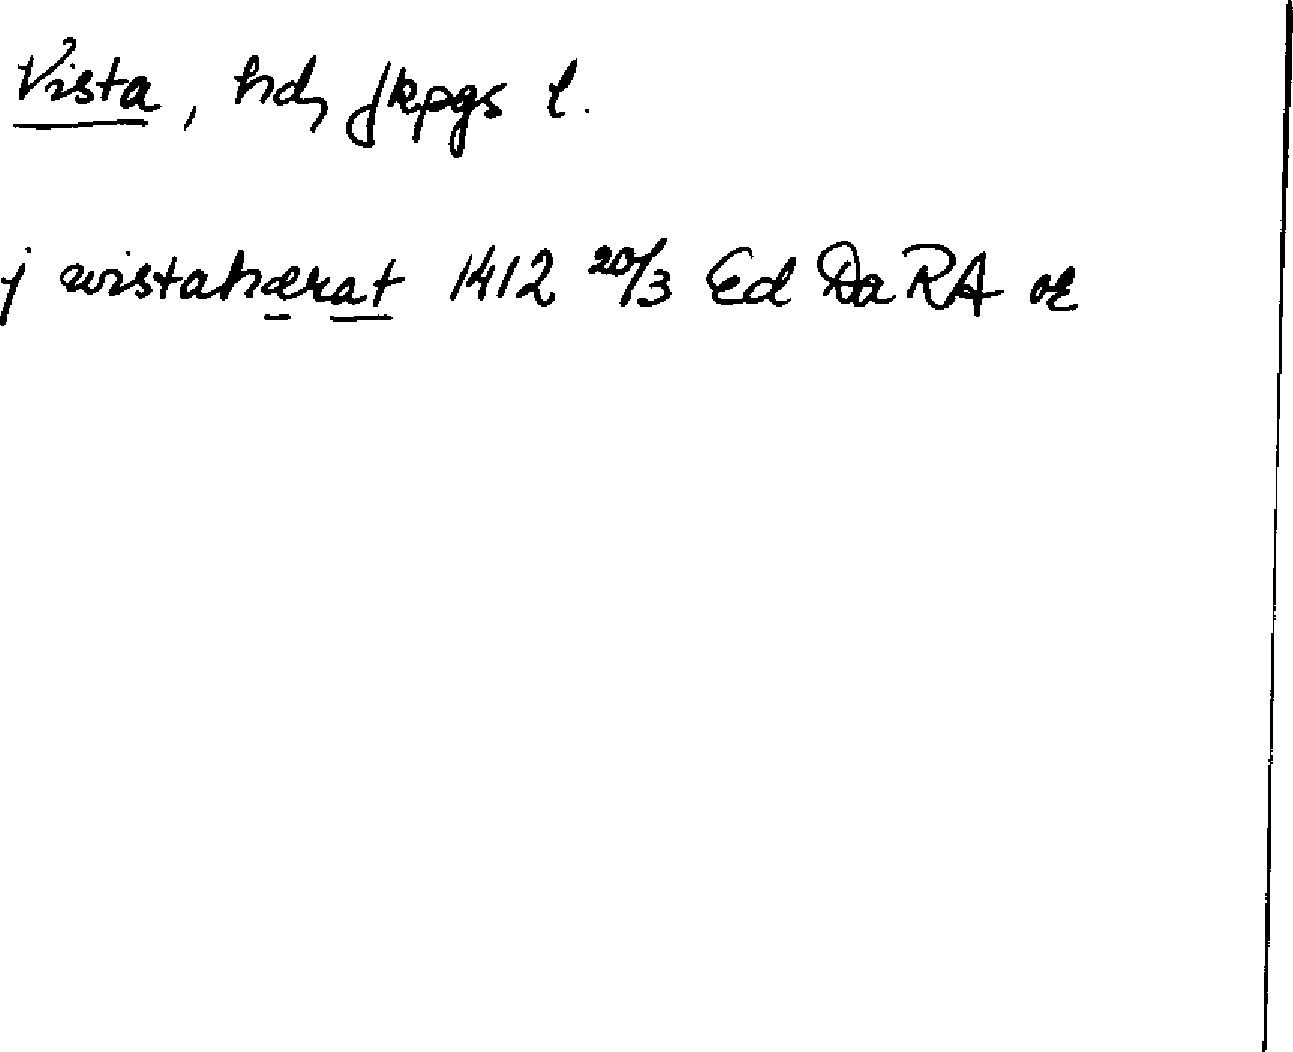 Vista, hd, Jkpgs l.
j wistahærat 1412 20/3 Ed Da RA or